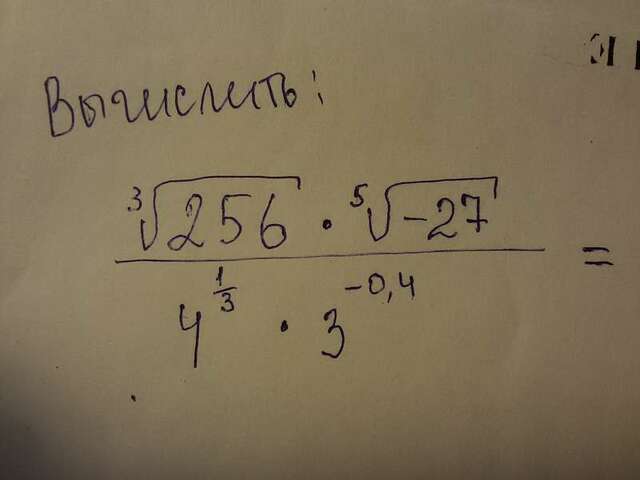 Вычислить:
∛256 · ⁵√-27
4^(1/3) · 3^(-0,4)
=